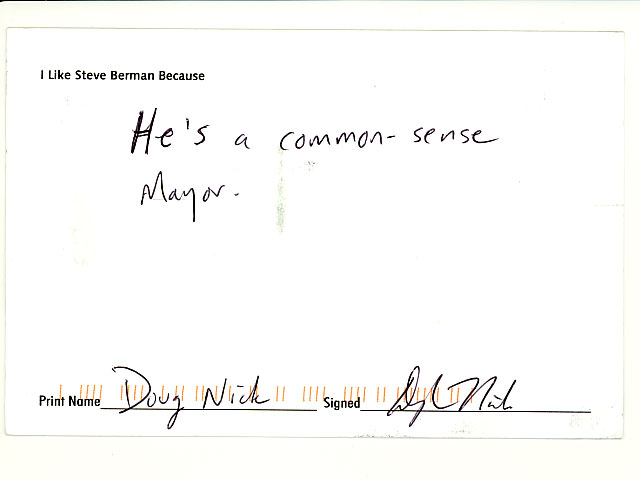 I Like Steve Berman Because
He's a common-sense
Mayor.
Print Name Doug Nick Signed